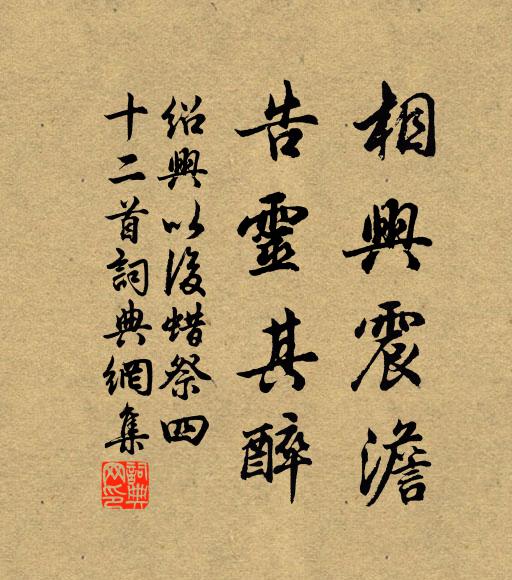 相興震澹
告靈其醉
紹興以後蜡祭四
十二首詞典網集
詞典
网印